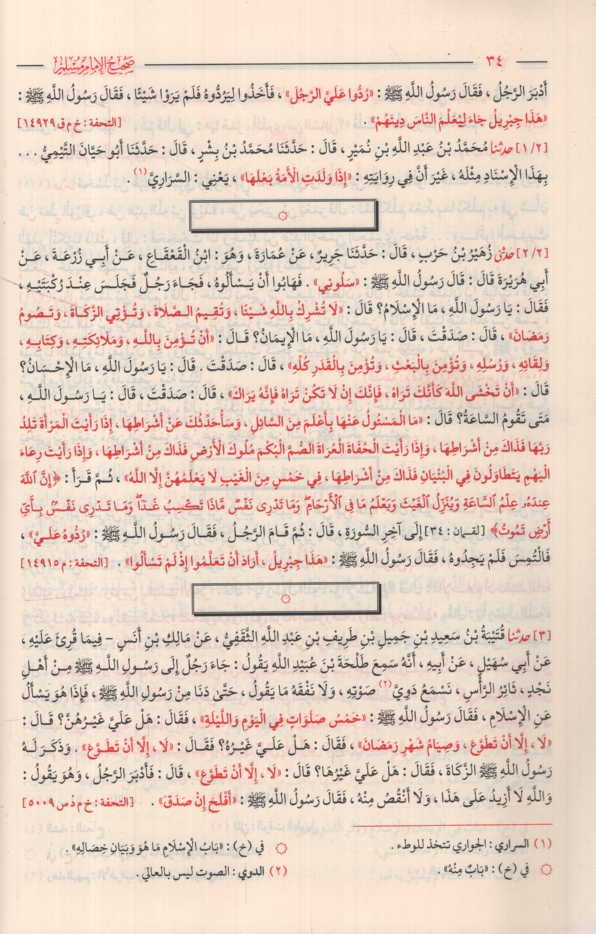 ٣٤
صحيح الإمام مسلم
أَدْبَرَ الرَّجُلُ ، فَقَالَ رَسُولُ اللَّهِ ﷺ : «رُدُّوا عَلَيَّ الرَّجُلَ» ، فَأَخَذُوا لِيَرُدُّوهُ فَلَمْ يَرَوْا شَيْئًا ، فَقَالَ رَسُولُ اللَّهِ ﷺ :
«هَذَا جِبْرِيلُ جَاءَ لِيُعَلِّمَ النَّاسَ دِينَهُمْ» . [التحفة : خ م ق ١٤٩٢٩]
[١/٢] حدثنا مُحَمَّدُ بْنُ عَبْدِ اللَّهِ بْنِ نُمَيْرٍ ، قَالَ : حَدَّثَنَا مُحَمَّدُ بْنُ بِشْرٍ ، قَالَ : حَدَّثَنَا أَبُو حَيَّانَ التَّيْمِيُّ ...
بِهَذَا الْإِسْنَادِ مِثْلَهُ ، غَيْرَ أَنَّ فِي رِوَايَتِهِ : «إِذَا وَلَدَتِ الْأَمَةُ بَعْلَهَا» ، يَعْنِي : السَّرَارِيَّ(١) .
[٢/٢] حدثني زُهَيْرُ بْنُ حَرْبٍ ، قَالَ : حَدَّثَنَا جَرِيرٌ ، عَنْ عُمَارَةَ ، وَهُوَ : ابْنُ الْقَعْقَاعِ ، عَنْ أَبِي زُرْعَةَ ، عَنْ
أَبِي هُرَيْرَةَ قَالَ : قَالَ رَسُولُ اللَّهِ ﷺ : «سَلُونِي» . فَهَابُوا أَنْ يَسْأَلُوهُ ، فَجَاءَ رَجُلٌ فَجَلَسَ عِنْدَ رُكْبَتَيْهِ ،
فَقَالَ : يَا رَسُولَ اللَّهِ ، مَا الْإِسْلَامُ؟ قَالَ : «لَا تُشْرِكُ بِاللَّهِ شَيْئًا ، وَتُقِيمُ الصَّلَاةَ ، وَتُؤْتِي الزَّكَاةَ ، وَتَصُومُ
رَمَضَانَ» ، قَالَ : صَدَقْتَ ، قَالَ : يَا رَسُولَ اللَّهِ ، مَا الْإِيمَانُ؟ قَالَ : «أَنْ تُؤْمِنَ بِاللَّهِ ، وَمَلَائِكَتِهِ ، وَكِتَابِهِ ،
وَلِقَائِهِ ، وَرُسُلِهِ ، وَتُؤْمِنَ بِالْبَعْثِ ، وَتُؤْمِنَ بِالْقَدَرِ كُلِّهِ» ، قَالَ : صَدَقْتَ . قَالَ : يَا رَسُولَ اللَّهِ ، مَا الْإِحْسَانُ؟
قَالَ : «أَنْ تَخْشَى اللَّهَ كَأَنَّكَ تَرَاهُ ، فَإِنَّكَ إِنْ لَا تَكُنْ تَرَاهُ فَإِنَّهُ يَرَاكَ» ، قَالَ : صَدَقْتَ ، قَالَ : يَا رَسُولَ اللَّهِ ،
مَتَى تَقُومُ السَّاعَةُ؟ قَالَ : «مَا الْمَسْئُولُ عَنْهَا بِأَعْلَمَ مِنَ السَّائِلِ ، وَسَأُحَدِّثُكَ عَنْ أَشْرَاطِهَا ، إِذَا رَأَيْتَ الْمَرْأَةَ تَلِدُ
رَبَّهَا فَذَاكَ مِنْ أَشْرَاطِهَا ، وَإِذَا رَأَيْتَ الْحُفَاةَ الْعُرَاةَ الصُّمَّ الْبُكْمَ مُلُوكَ الْأَرْضِ فَذَاكَ مِنْ أَشْرَاطِهَا ، وَإِذَا رَأَيْتَ رِعَاءَ
الْبَهْمِ يَتَطَاوَلُونَ فِي الْبُنْيَانِ فَذَاكَ مِنْ أَشْرَاطِهَا ، فِي خَمْسٍ مِنَ الْغَيْبِ لَا يَعْلَمُهُنَّ إِلَّا اللَّهُ» ، ثُمَّ قَرَأَ : ﴿إِنَّ ٱللَّهَ
عِندَهُۥ عِلْمُ ٱلسَّاعَةِ وَيُنَزِّلُ ٱلْغَيْثَ وَيَعْلَمُ مَا فِى ٱلْأَرْحَامِ وَمَا تَدْرِى نَفْسٌ مَّاذَا تَكْسِبُ غَدًا وَمَا تَدْرِى نَفْسٌۢ بِأَىِّ
أَرْضٍ تَمُوتُ﴾ [لقمان : ٣٤] إِلَى آخِرِ السُّورَةِ ، قَالَ : ثُمَّ قَامَ الرَّجُلُ ، فَقَالَ رَسُولُ اللَّهِ ﷺ : «رُدُّوهُ عَلَيَّ» ،
فَالْتُمِسَ فَلَمْ يَجِدُوهُ ، فَقَالَ رَسُولُ اللَّهِ ﷺ : «هَذَا جِبْرِيلُ ، أَرَادَ أَنْ تَعَلَّمُوا إِذْ لَمْ تَسْأَلُوا» . [التحفة : م ١٤٩١٥]
[٣] حدثنا قُتَيْبَةُ بْنُ سَعِيدِ بْنِ جَمِيلِ بْنِ طَرِيفِ بْنِ عَبْدِ اللَّهِ الثَّقَفِيُّ ، عَنْ مَالِكِ بْنِ أَنَسٍ - فِيمَا قُرِئَ عَلَيْهِ ،
عَنْ أَبِي سُهَيْلٍ ، عَنْ أَبِيهِ ، أَنَّهُ سَمِعَ طَلْحَةَ بْنَ عُبَيْدِ اللَّهِ يَقُولُ : جَاءَ رَجُلٌ إِلَى رَسُولِ اللَّهِ ﷺ مِنْ أَهْلِ
نَجْدٍ ، ثَائِرُ الرَّأْسِ ، نَسْمَعُ دَوِيَّ(٢) صَوْتِهِ ، وَلَا نَفْقَهُ مَا يَقُولُ ، حَتَّىٰ دَنَا مِنْ رَسُولِ اللَّهِ ﷺ ، فَإِذَا هُوَ يَسْأَلُ
عَنِ الْإِسْلَامِ ، فَقَالَ رَسُولُ اللَّهِ ﷺ : «خَمْسُ صَلَوَاتٍ فِي الْيَوْمِ وَاللَّيْلَةِ» ، فَقَالَ : هَلْ عَلَيَّ غَيْرُهُنَّ؟ قَالَ :
«لَا ، إِلَّا أَنْ تَطَوَّعَ ، وَصِيَامُ شَهْرِ رَمَضَانَ» ، فَقَالَ : هَلْ عَلَيَّ غَيْرُهُ؟ فَقَالَ : «لَا ، إِلَّا أَنْ تَطَوَّعَ» . وَذَكَرَ لَهُ
رَسُولُ اللَّهِ ﷺ الزَّكَاةَ ، فَقَالَ : هَلْ عَلَيَّ غَيْرُهَا؟ قَالَ : «لَا ، إِلَّا أَنْ تَطَوَّعَ» ، قَالَ : فَأَدْبَرَ الرَّجُلُ ، وَهُوَ يَقُولُ :
وَاللَّهِ لَا أَزِيدُ عَلَى هَذَا ، وَلَا أَنْقُصُ مِنْهُ ، فَقَالَ رَسُولُ اللَّهِ ﷺ : «أَفْلَحَ إِنْ صَدَقَ» . [التحفة : خ م د س ٥٠٠٩]
(١) السراري : الجواري تتخذ للوطء .
۞ في (خ) : «بَابُ الْإِسْلَامِ مَا هُوَ وَبَيَانِ خِصَالِهِ» .
۞ في (خ) : «بَابٌ مِنْهُ» .
(٢) الدوي : الصوت ليس بالعالي .